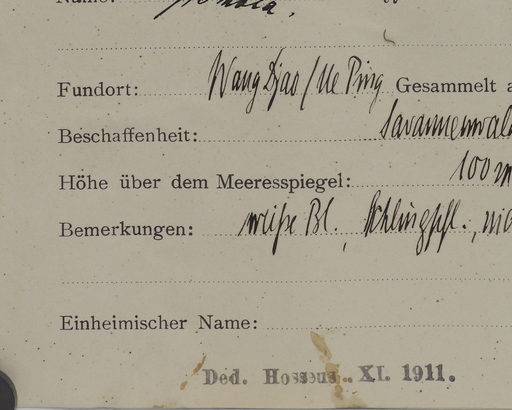 Name:
Fundort: Wang Djao / Me Ping Gesammelt a
Beschaffenheit: Savannenwal
Höhe über dem Meeresspiegel: 100 m
Bemerkungen: weiße Bl., Schlingpfl.,
Einheimischer Name:
Ded. Hosseus. XI. 1911.